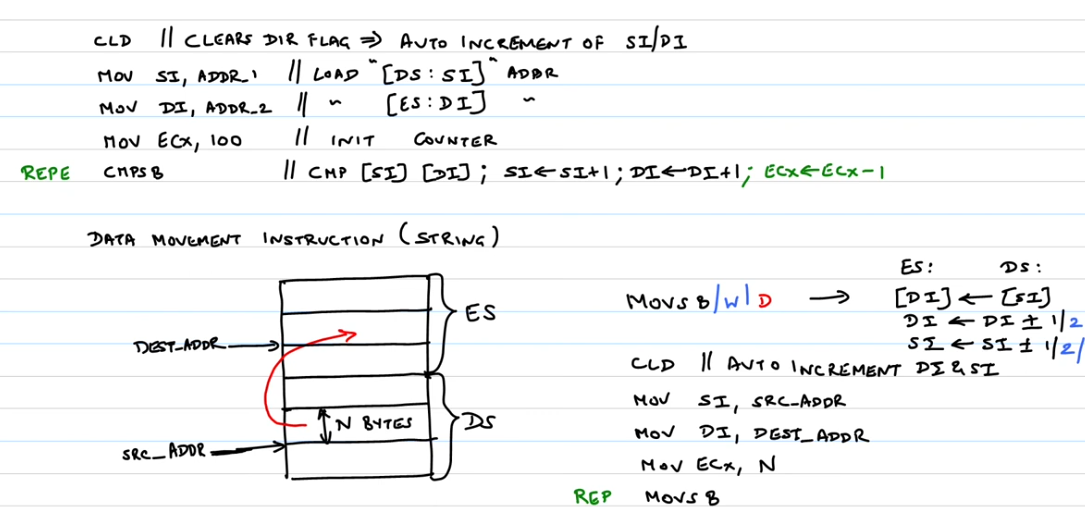 CLD // CLEARS DIR FLAG ⇒ AUTO INCREMENT OF SI/DI
MOV SI, ADDR_1 // LOAD "[DS:SI]" ADDR
MOV DI, ADDR_2 // " [ES:DI] "
MOV ECX, 100 // INIT COUNTER
REPE CMPSB // CMP [SI] [DI]; SI←SI+1; DI←DI+1; ECX←ECX-1
DATA MOVEMENT INSTRUCTION (STRING)
ES
DEST_ADDR
N BYTES
DS
SRC_ADDR
ES: DS:
MOVSB/W/D → [DI] ← [SI]
DI ← DI ± 1/2
SI ← SI ± 1/2/
CLD // AUTO INCREMENT DI & SI
MOV SI, SRC_ADDR
MOV DI, DEST_ADDR
MOV ECX, N
REP MOVSB